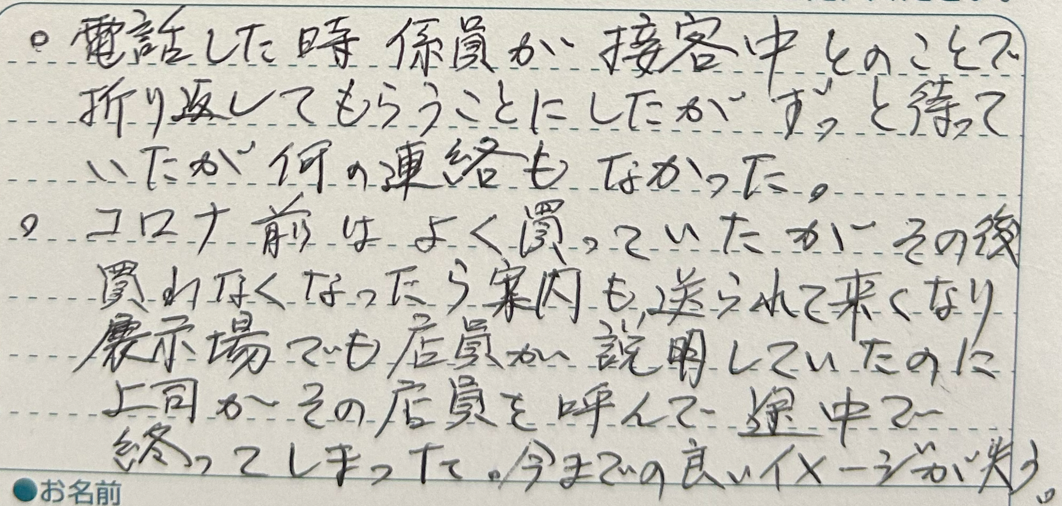 。電話した時 係員が 接客中とのことで
折り返してもらうことにしたが ずっと待って
いたが何の連絡も なかった。
。コロナ前は よく買っていたが その後
買わなくなったら案内も送られて来くなり
展示場でも店員が説明していたのに
上司がその店員を呼んで途中で
終ってしまった。今までの良いイメージが失う。
●お名前